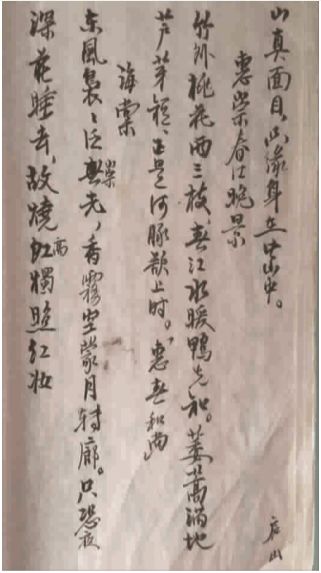 山真面目,只缘身在此山中。
惠崇春江晚景
竹外桃花两三枝,春江水暖鸭先知。蒌蒿满地
芦芽短,正是河豚欲上时。
海棠
东风袅袅泛崇光,香雾空蒙月转廊。只恐夜
深花睡去,故烧高烛照红妆